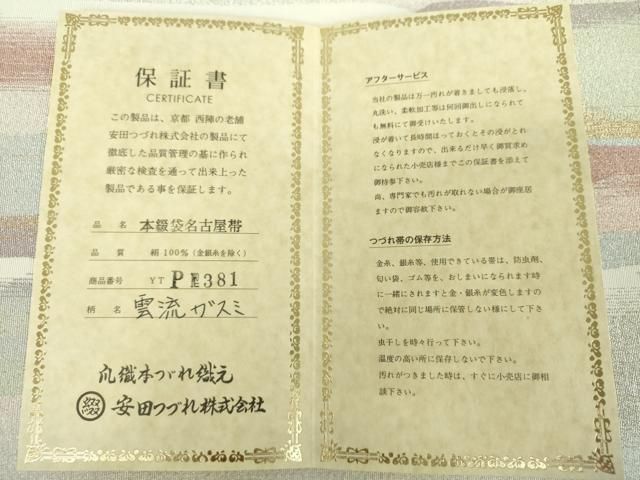 保証書
CERTIFICATE
この製品は、京都 西陣の老舗
安田つづれ株式会社の製品にて
徹底した品質管理の基に作られ
厳密な検査を通って出来上った
製品である事を保証します。
品名 本綴袋名古屋帯
品質 絹100%(金銀糸を除く)
商品番号 YT P 381
柄名 雲流ガスミ
爪織本つづれ織元
安田つづれ株式会社
アフターサービス
当社の製品は万一汚れが着きましても浸落し、
丸洗い、柔軟加工等は何回御出しになられて
も無料にて御受けいたします。
浸が着いて長時間ほっておくとその浸がとれ
なくなりますので、出来るだけ早く御買求め
になられた小売店様までこの保証書を添えて
御持参下さい。
尚、専門家でも汚れが取れない場合が御座居
ますので御容赦下さい。
つづれ帯の保存方法
金糸、銀糸等、使用できている帯は、防虫剤、
匂い袋、ゴム等を、おしまいになられます時
に一緒にされますと金・銀糸が変色しますの
で絶対に同じ場所に保管しない様にして下さ
い。
虫干しを時々行って下さい。
温度の高い所に保存しないで下さい。
汚れがつきました時は、すぐに小売店に御相
談下さい。